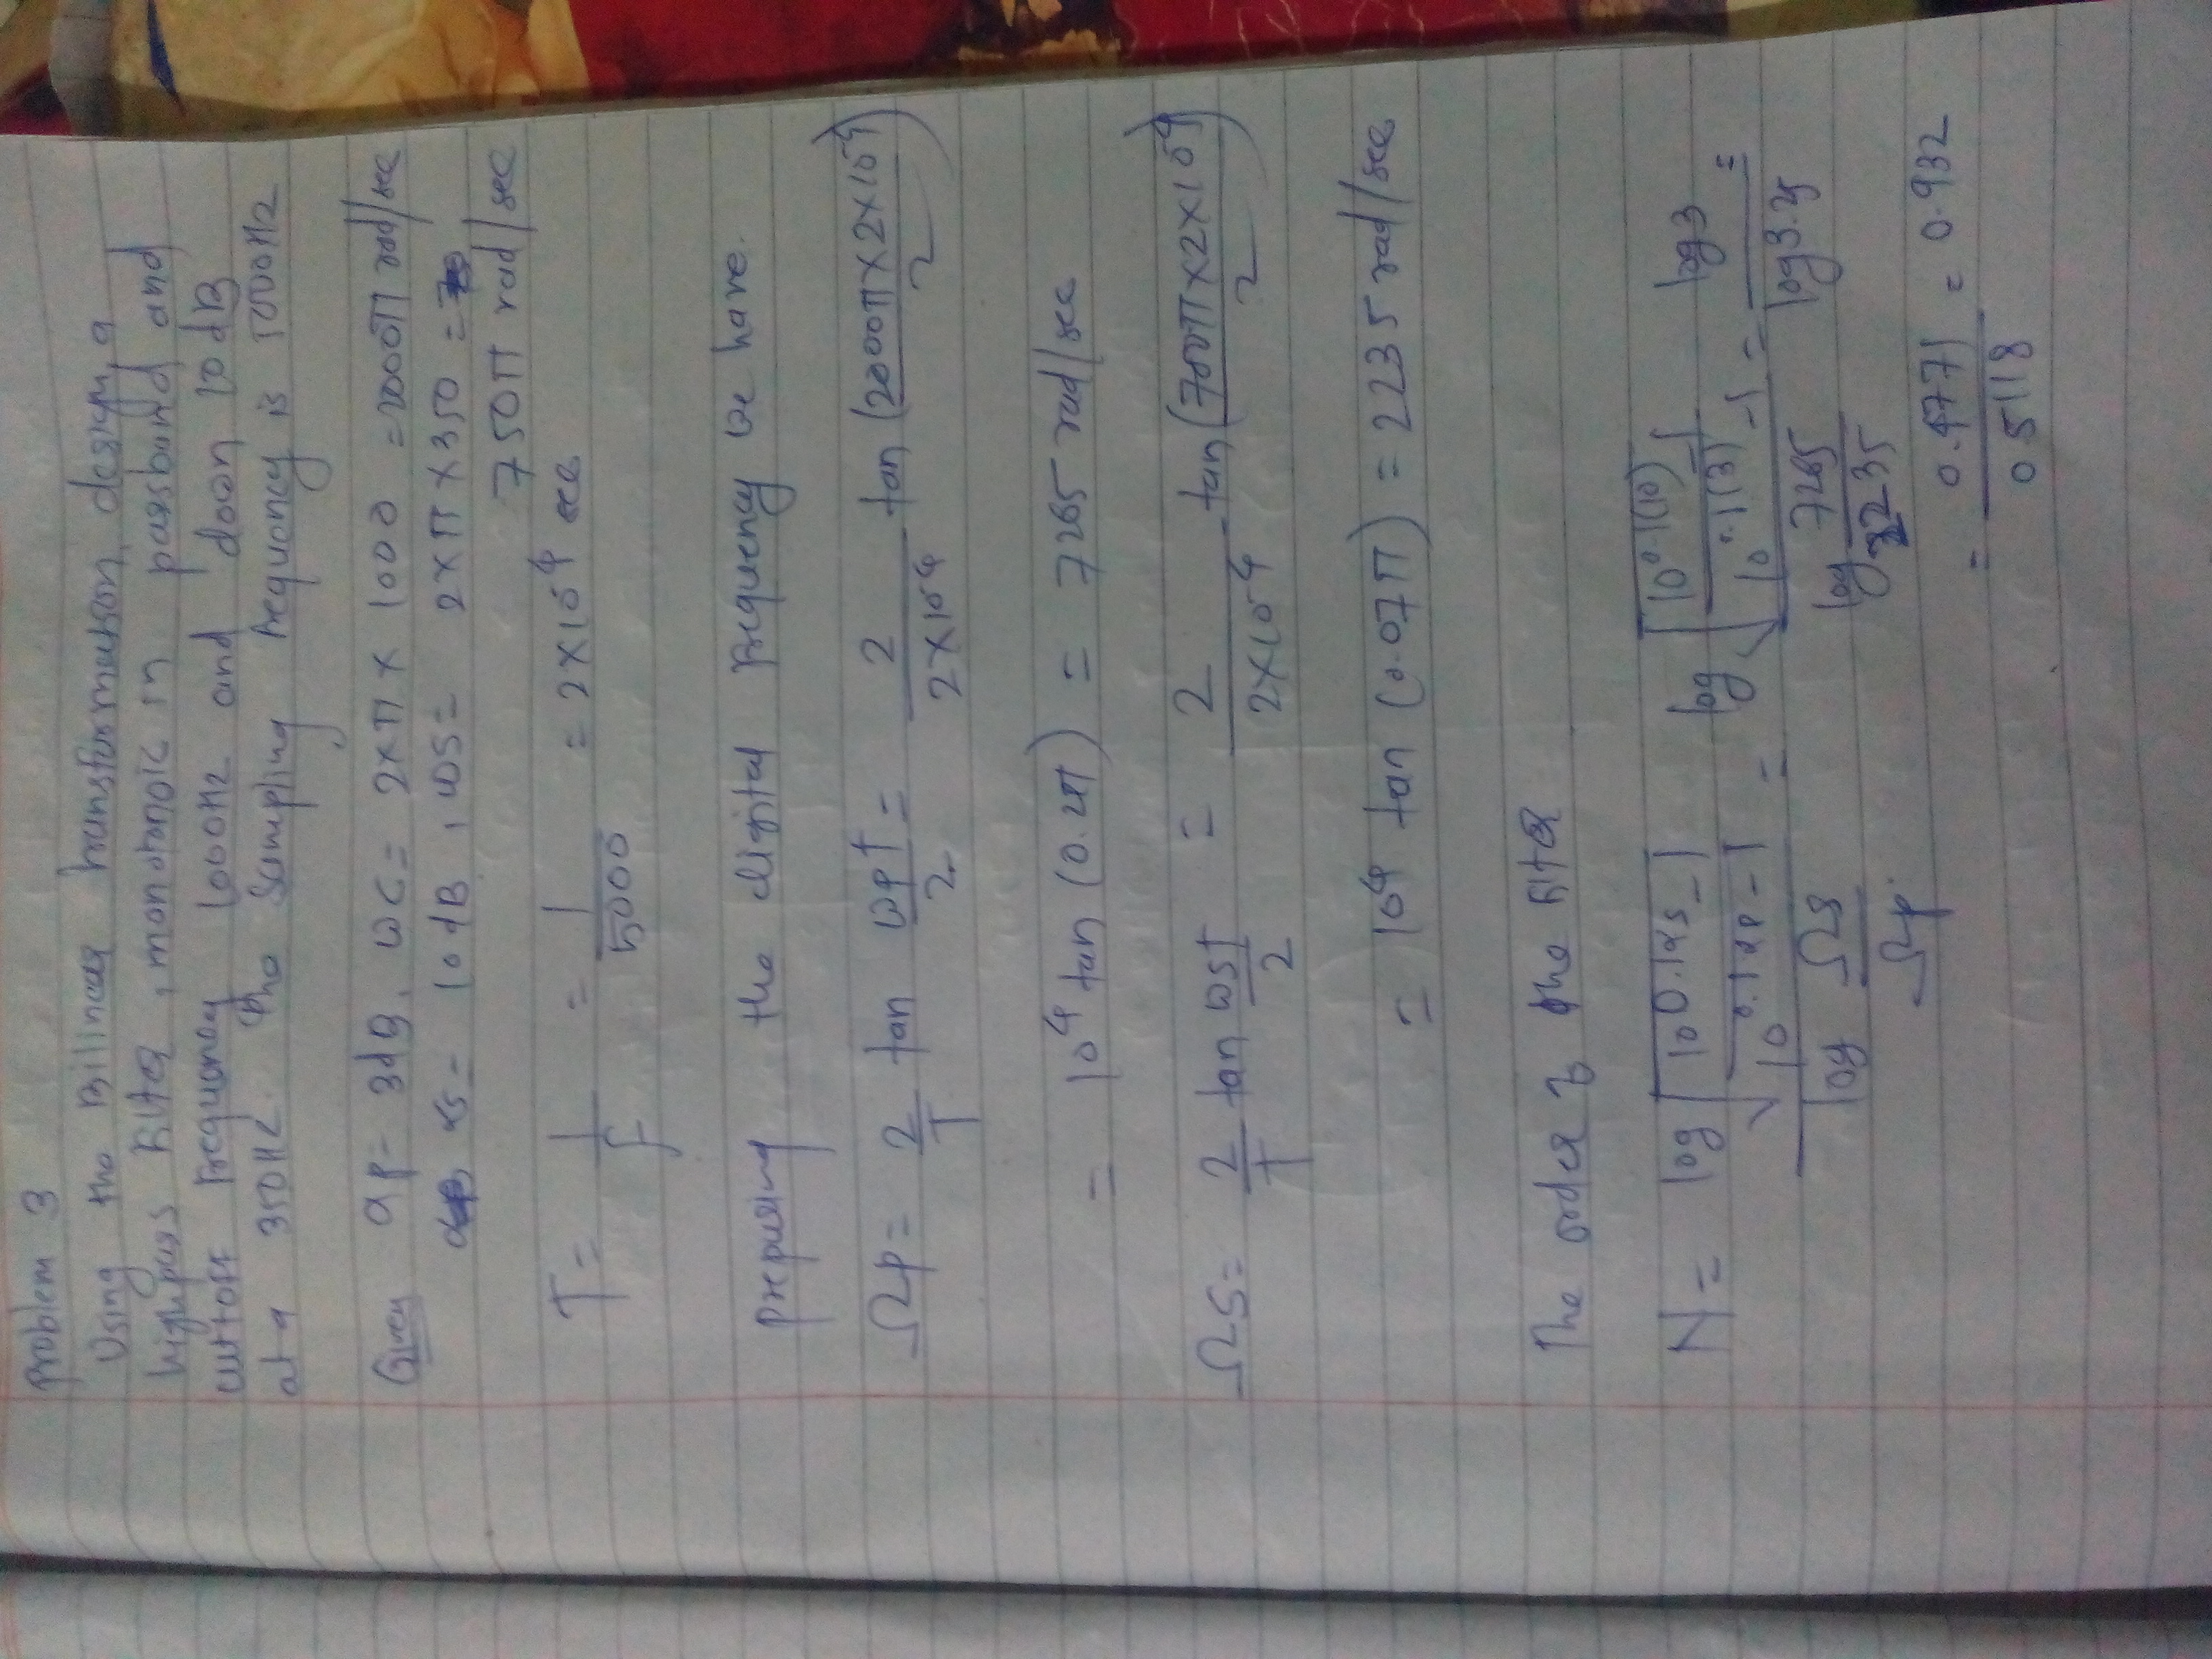 Problem 3
Using the Billinear transformation, design a
highpass filter, monotonic in passband and
cuttoff frequency 1000Hz and down 10dB
at a 350Hz. The Sampling frequency is 5000Hz
Given αp = 3dB, ωc = 2×π × 1000 = 2000π rad/sec
αs = 10dB, ωs = 2×π×350 =
750π rad/sec
T = 1/F = 1/5000 = 2×10⁻⁴ sec
prepairing the digital frequency we have.
Ωp = 2/T tan ωpT/2 = 2/2×10⁻⁴ tan (2000π×2×10⁻⁴/2)
= 10⁴ tan (0.2π) = 7265 rad/sec
Ωs = 2/T tan ωsT/2 = 2/2×10⁻⁴ tan (700π×2×10⁻⁴/2)
= 10⁴ tan (0.07π) = 2235 rad/sec
The order of the filter
N = log √(10^0.1αs -1 / 10^0.1αp -1) / log Ωs/Ωp = log √(10^0.1(10) -1 / 10^0.1(3) -1) / log 7265/2235 = log3 / log3.25 =
= 0.4771/0.5118 = 0.932